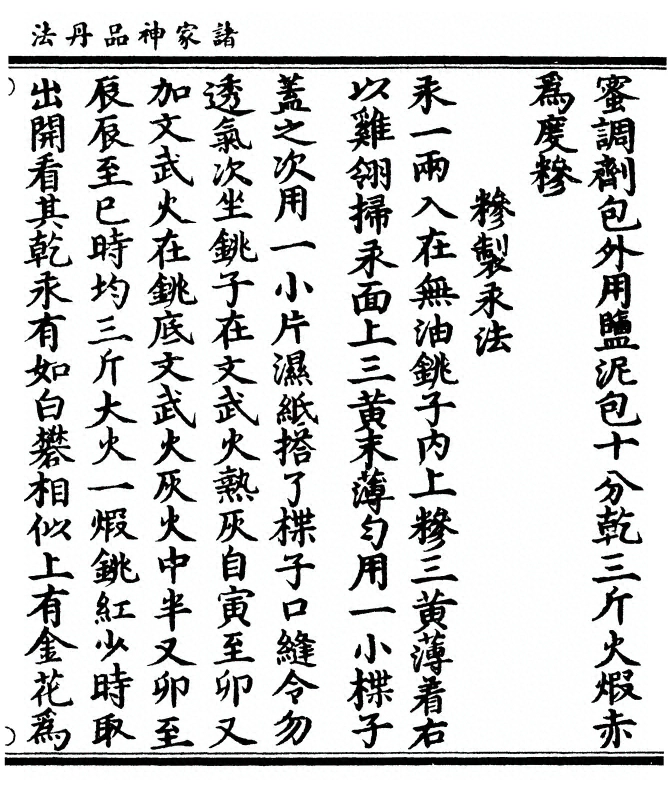 諸家神品丹法
蜜調劑包外用鹽泥包十分乾三斤火煆赤
爲度糝
糝製汞法
汞一兩入在無油銚子内上糝三黄薄着右
以雞翎掃汞面上三黄末薄勻用一小楪子
蓋之次用一小片濕紙搭了楪子口縫令勿
透氣次坐銚子在文武火熟灰自寅至卯又
加文武火在銚底文武火灰火中半又卯至
辰辰至巳時均三斤大火一煆銚紅少時取
出開看其乾汞有如白礬相似上有金花爲